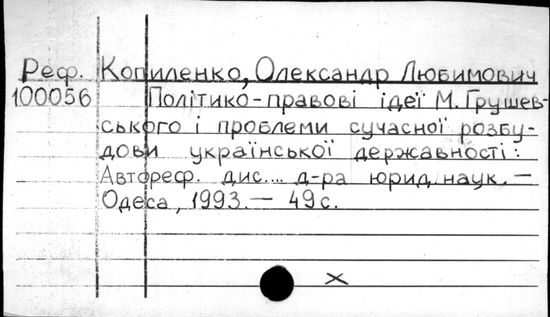 Реф. Копиленко, Олександр Любимович
100056 Політико-правові ідеї М. Грушев-
ського і проблеми сучасної розбу-
дови української державності:
Автореф. дис.... д-ра юрид. наук. —
Одеса, 1993. — 49 с.
×